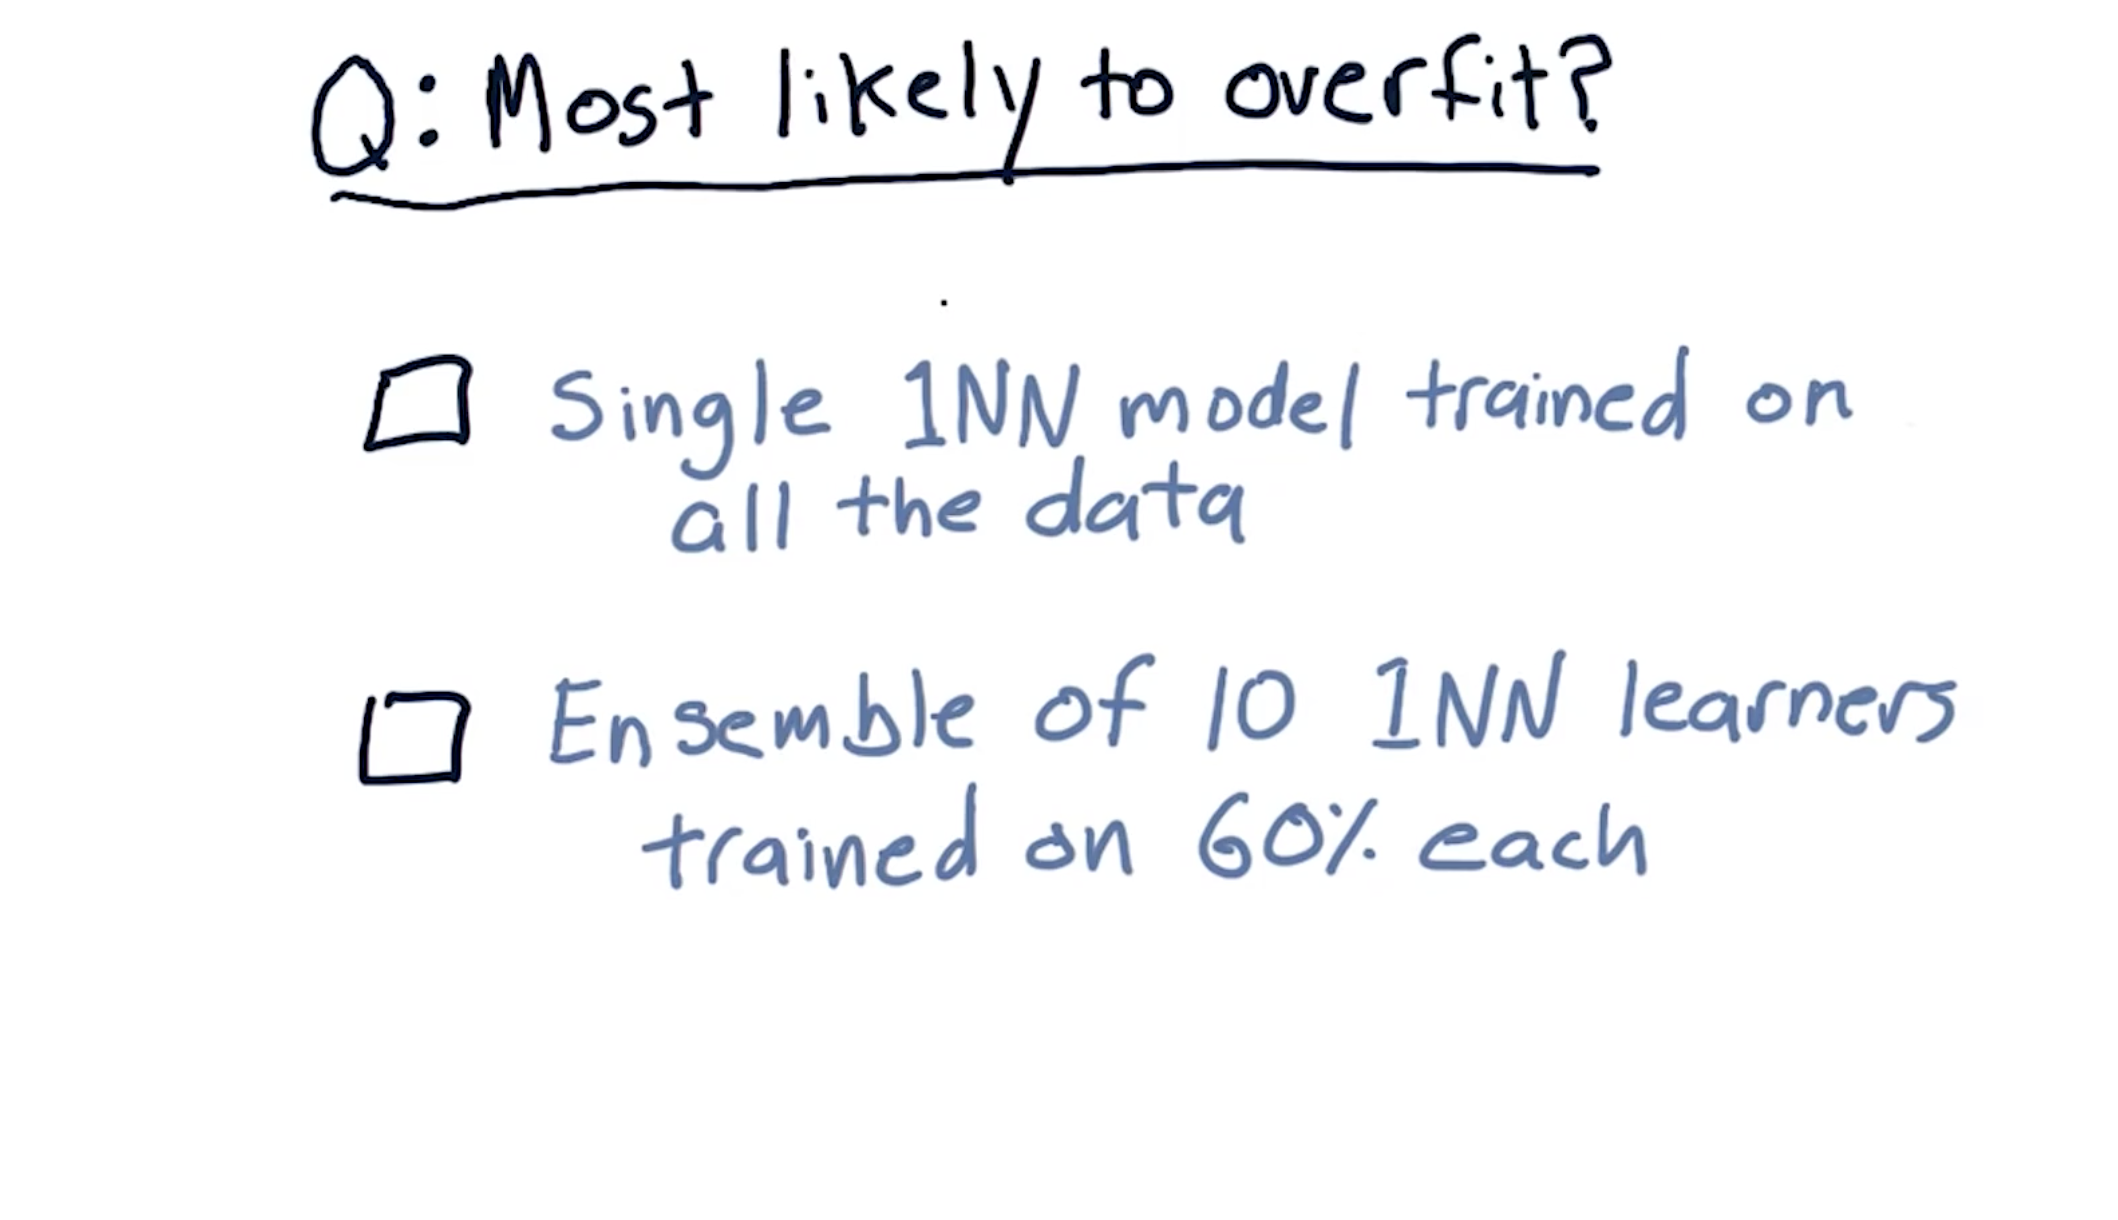 Q: Most likely to overfit?
Single 1NN model trained on
all the data
Ensemble of 10 1NN learners
trained on 60% each